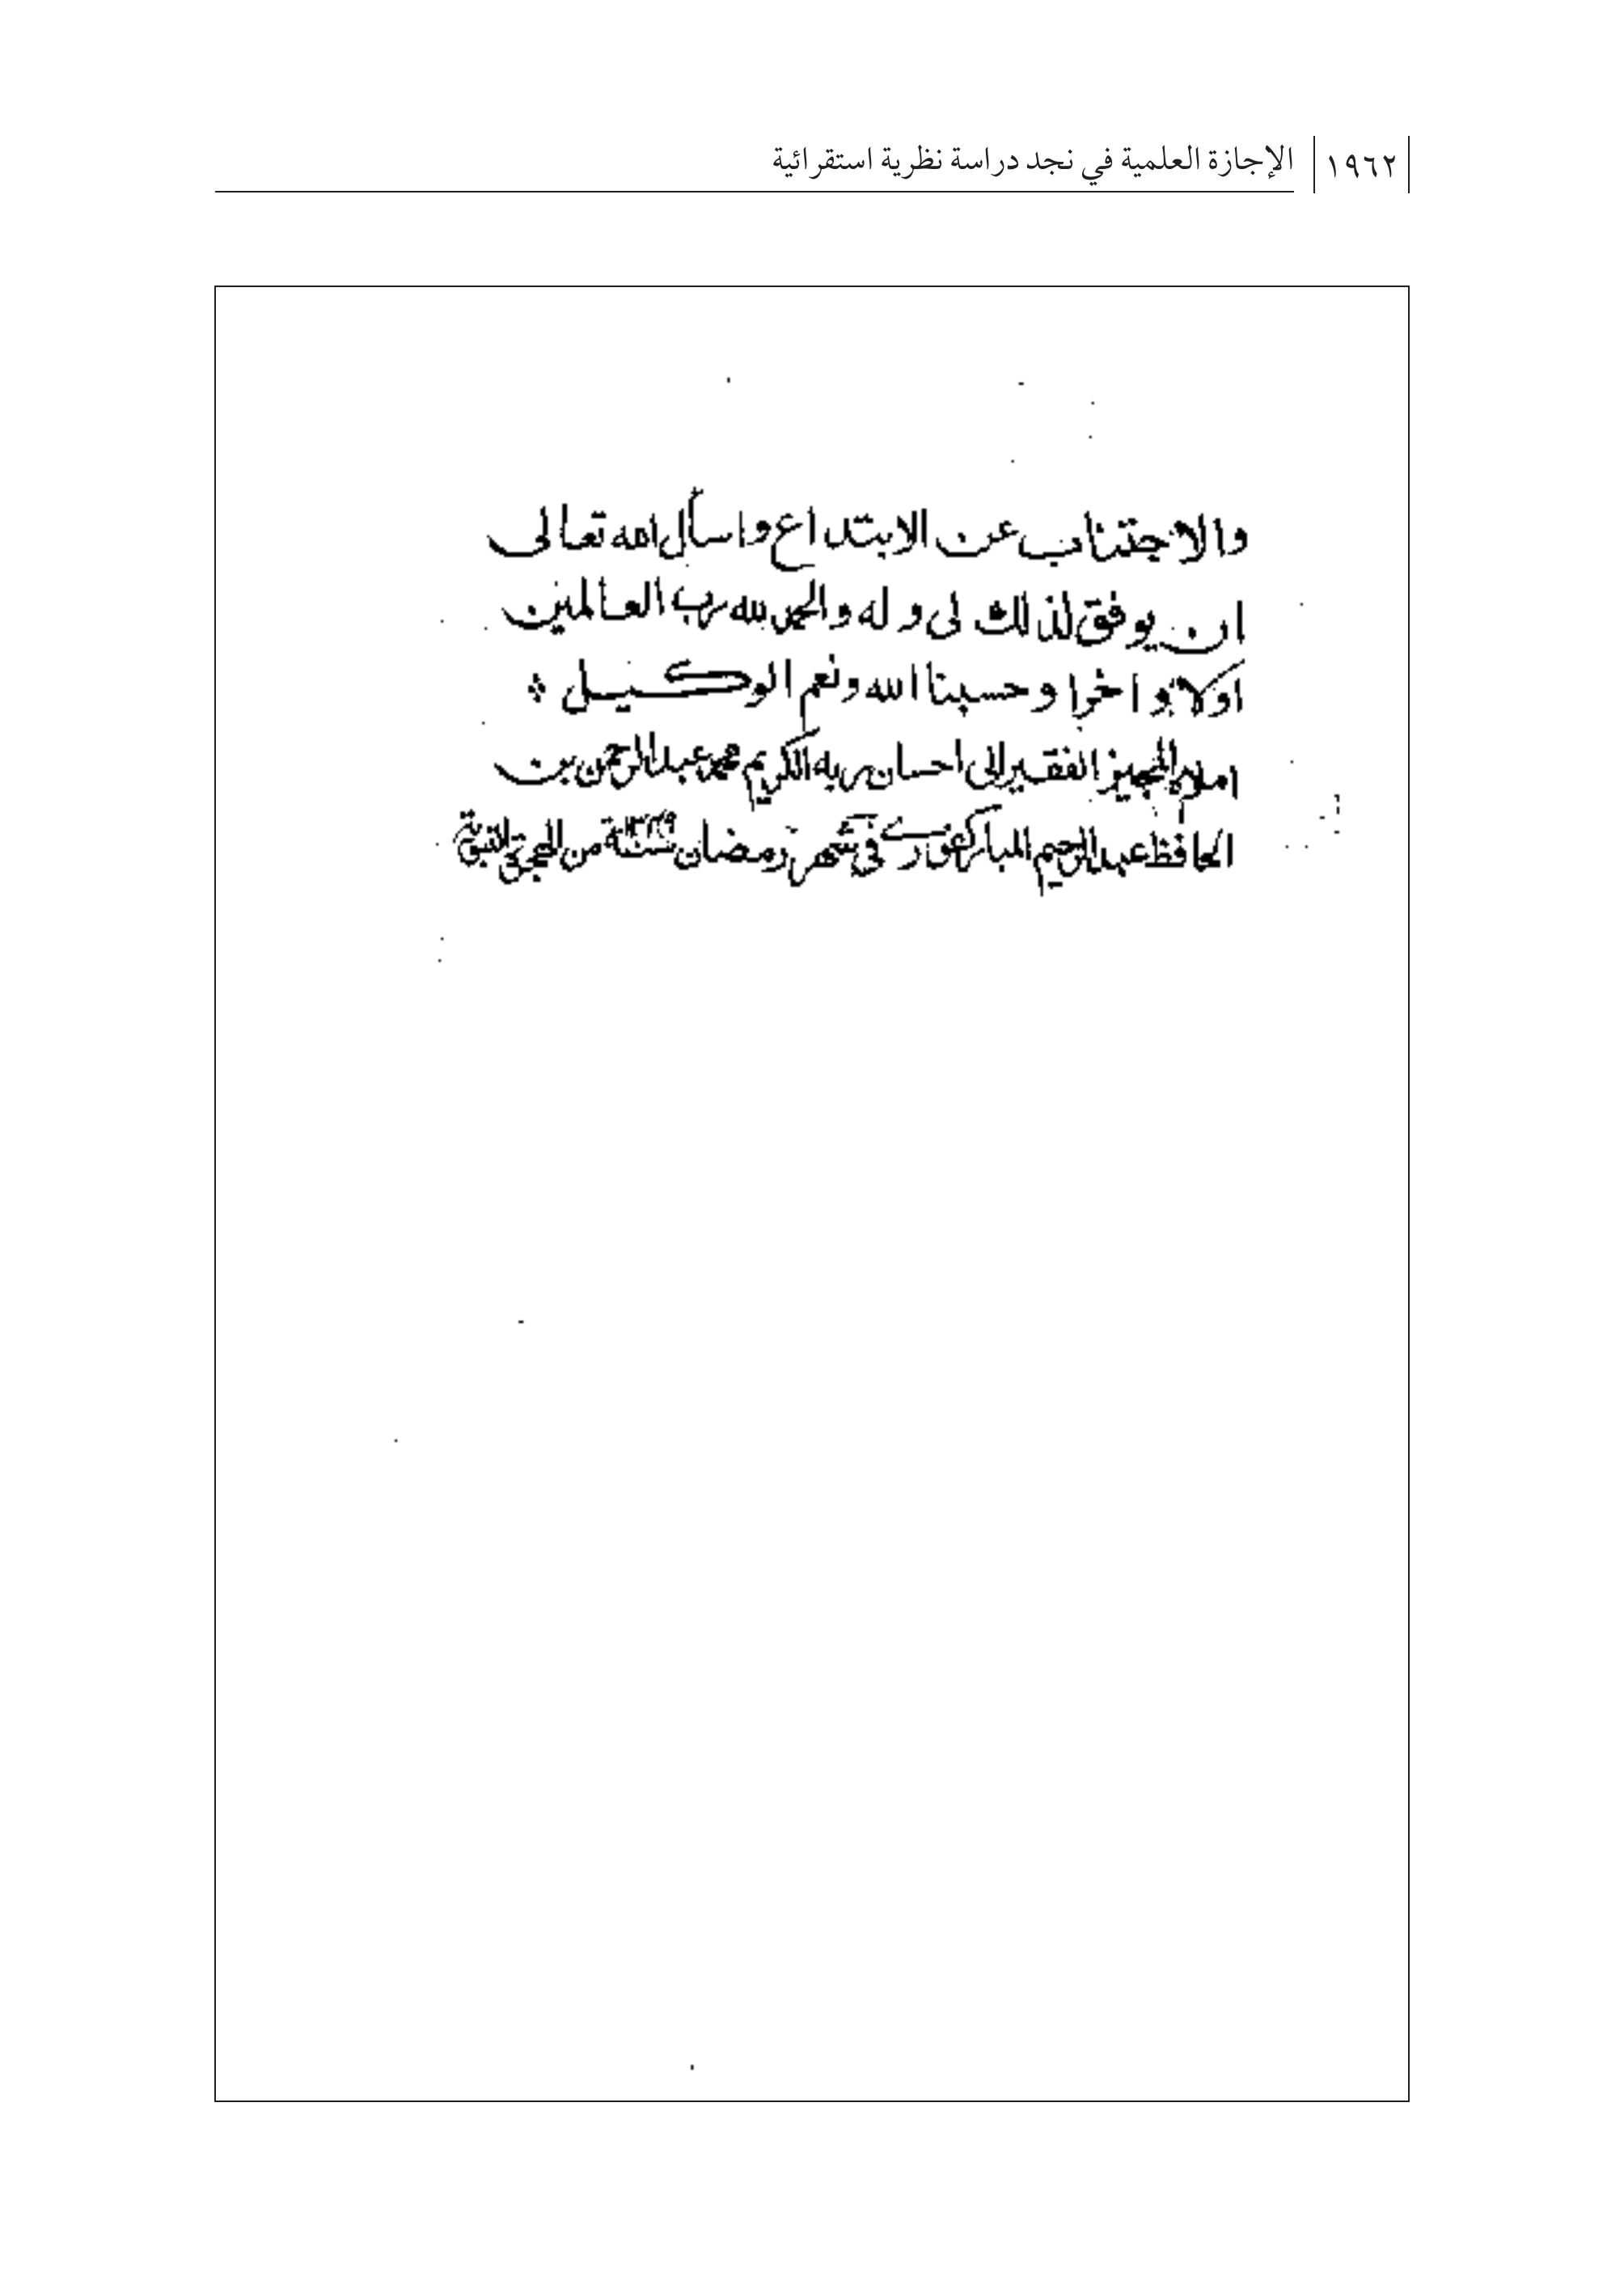 ١٩٦٢ الإجازة العلمية في نجد دراسة نظرية استقرائية
والاجتناب عن الابتداع واسأل الله تعالى
ان يوفق لذلك لى وله والحمد لله رب العالمين
اولا واخرا وحسبنا الله ونعم الوكيل
املاه المجيز الفقير الى احسان ربه الكريم محمد عبد الرحمن بن
الحافظ عبد الرحيم المباركفورى فى شهر رمضان من الهجرة النبوية